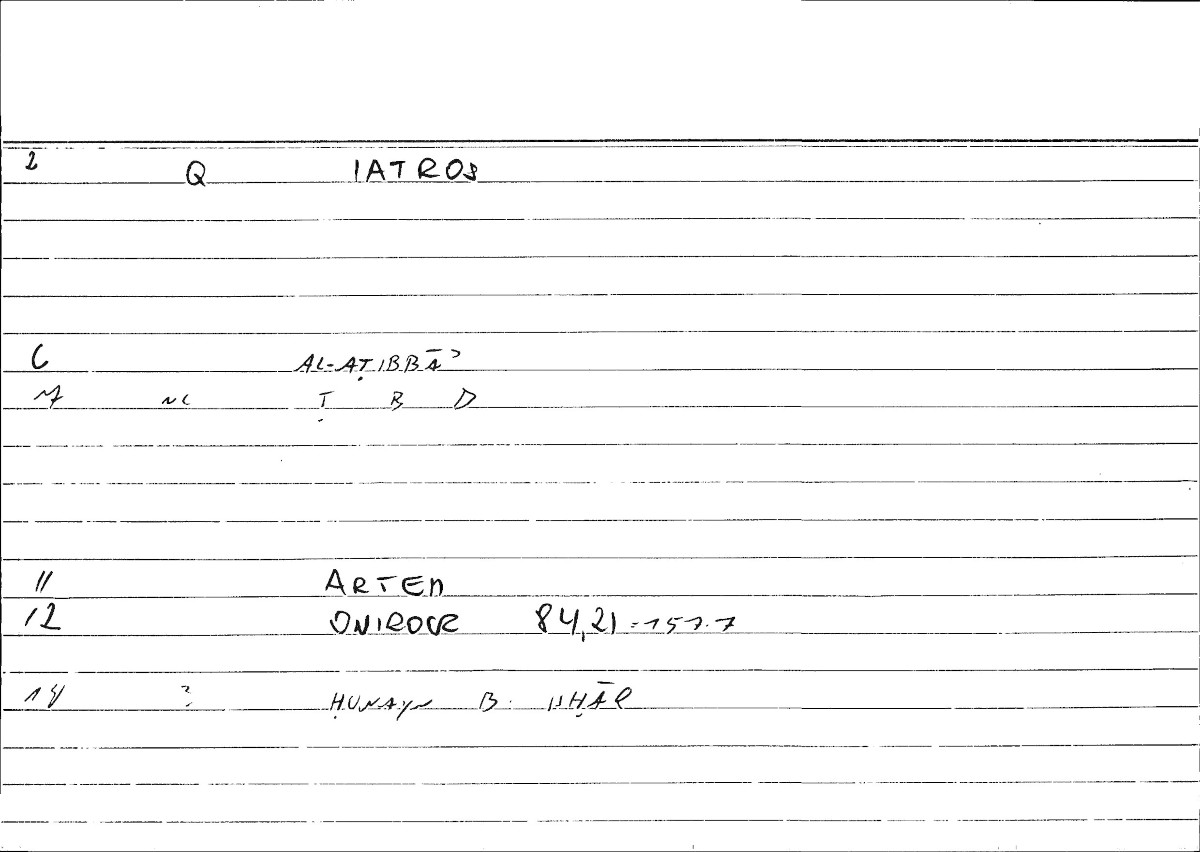 2 Q IATROS
6 AL-AṬIBBĀʾ
7 NC Ṭ B B
11 ARTEM
12 ONIROCR 84,21 = 157.7
14 ? ḤUNAYN B. ISḤĀQ